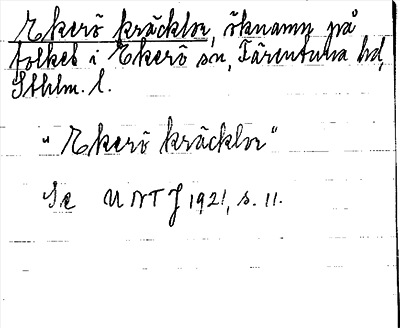 Ekerö kräcklor, öknamn på
folket i Ekerö sn, Färentuna hd,
Sthlm. l.
"Ekerö kräcklor"
Se UNTJ 1921, s. 11.